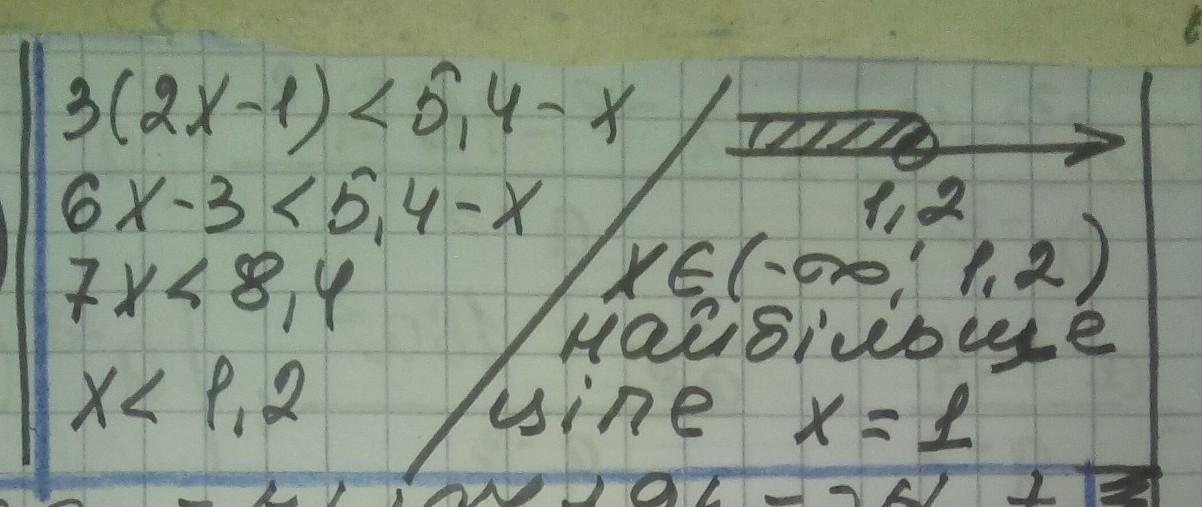 3(2x-1) < 5,4 - x
6x - 3 < 5,4 - x
7x < 8,4
x < 1,2
1,2
x∈(-∞; 1,2)
найбільше
ціле x = 1